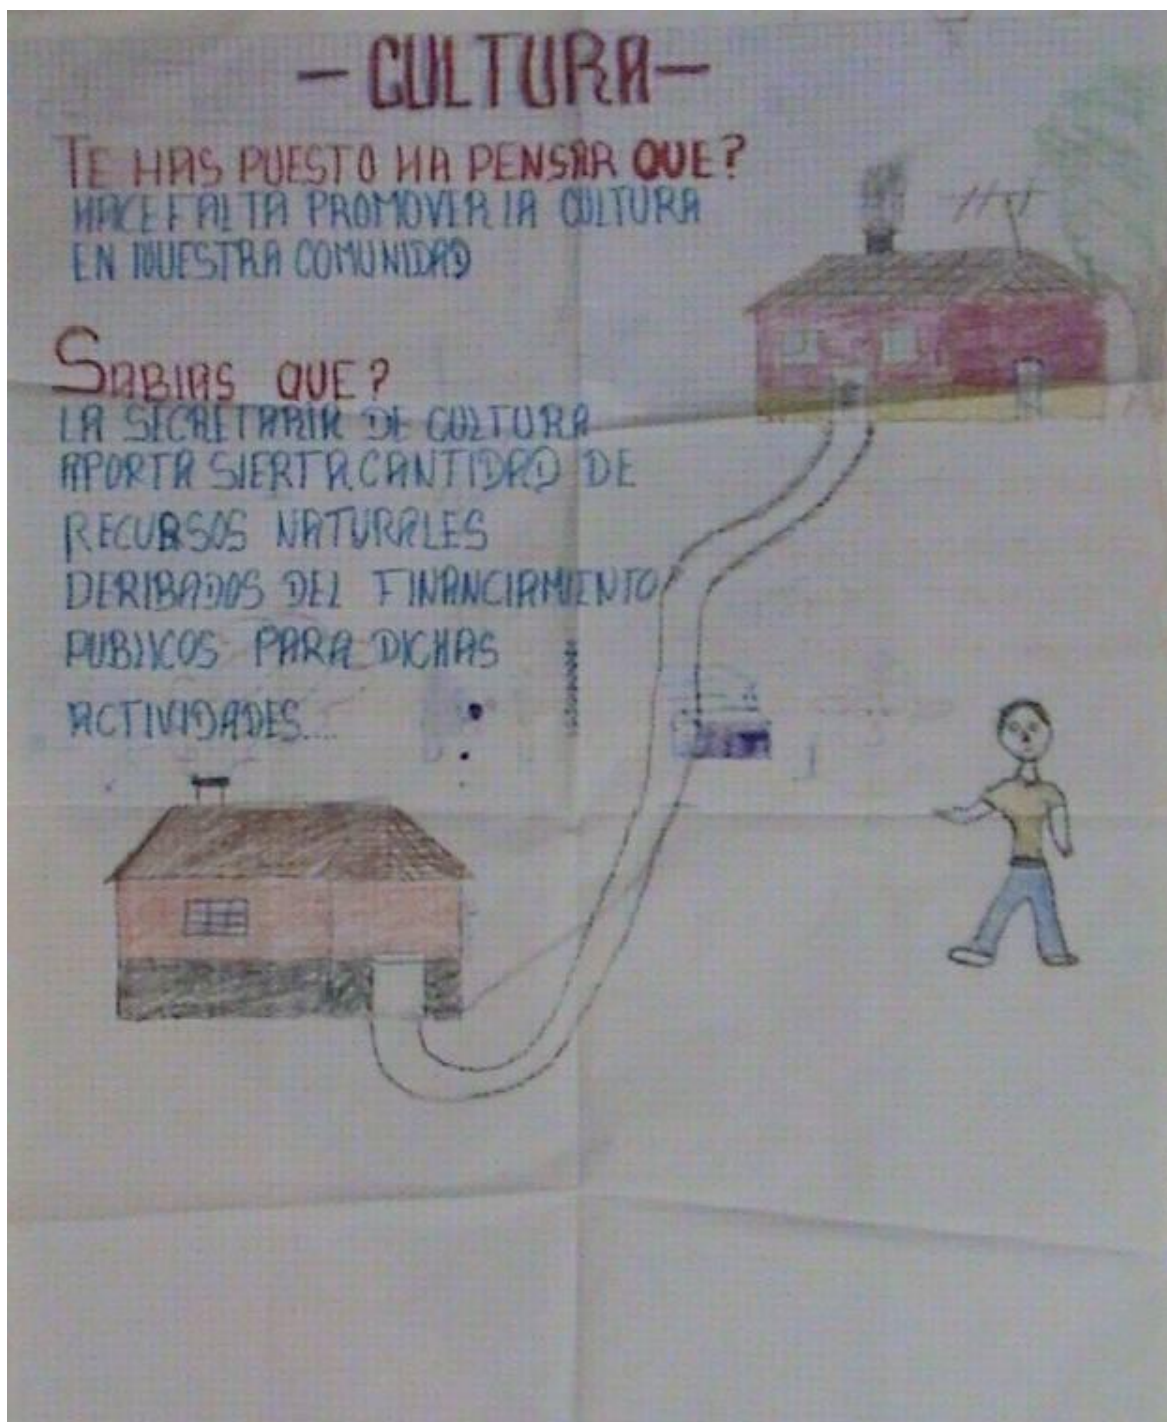 - CULTURA -
TE HAS PUESTO HA PENSAR QUE?
HACE FALTA PROMOVER LA CULTURA
EN NUESTRA COMUNIDAD
SABIAS QUE?
LA SECRETARIA DE CULTURA
APORTA SIERTA CANTIDAD DE
RECURSOS NATURALES
DERIBADOS DEL FINANCIAMIENTO
PUBLICOS PARA DICHAS
ACTIVIDADES....